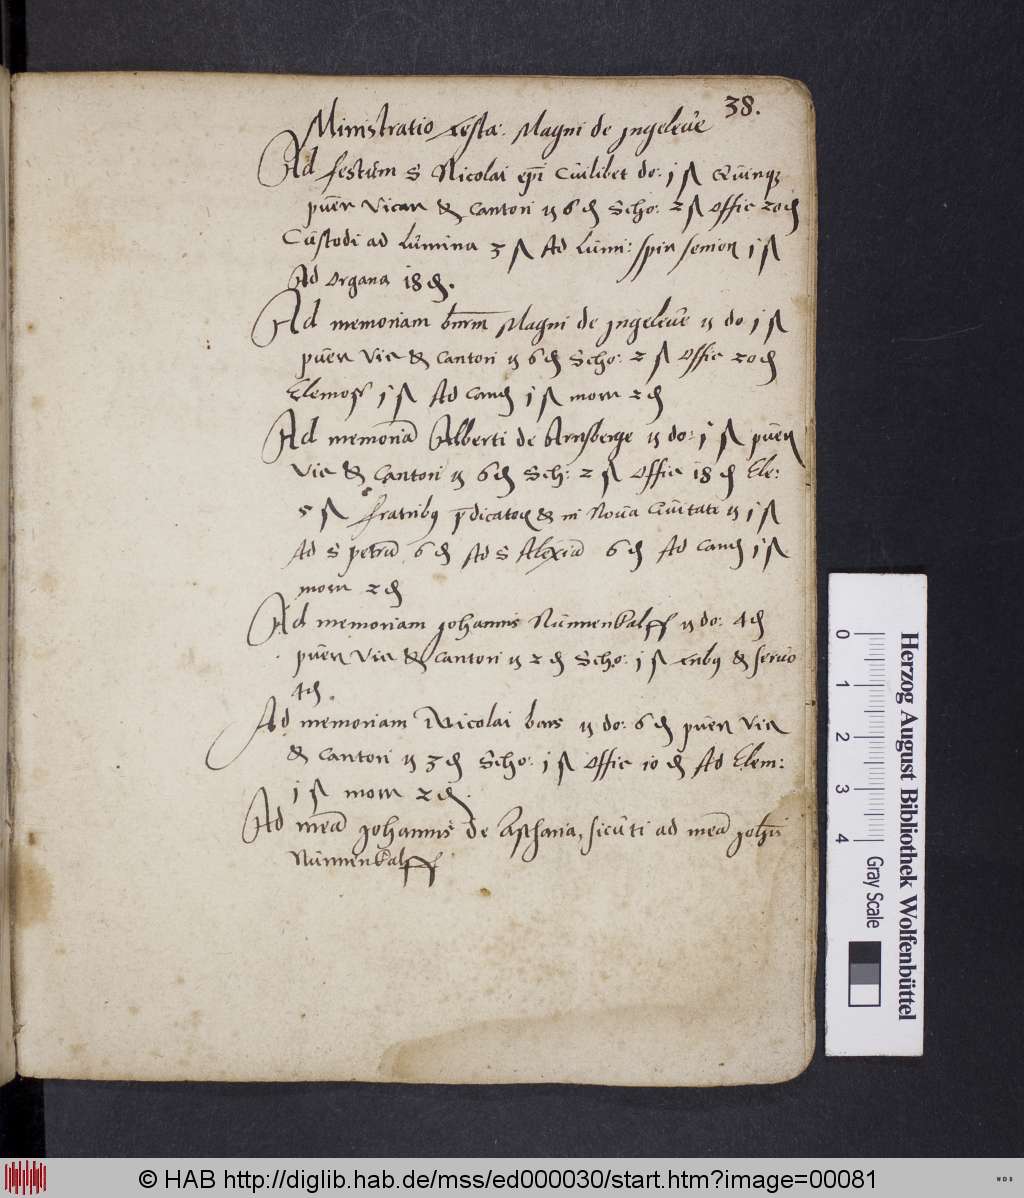 38.
Ministratio testa: Magni de Jngeleve
Ad festum S Nicolai epi Cuilibet do: j ß Quinque
puer Vicar & Cantori 6 ₰ Scho: 2 ß Offic 20 ₰
Custodi ad Lumina 3 ß Ad Lumi: senior j ß
Ad organa 18 ₰.
Ad memoriam Magni de Jngeleve do j ß
puer Vic & Cantori 6 ₰ Scho: 2 ß Offic 20 ₰
Elemos j ß Ad Cand j ß 2 ₰
Ad memoria Alberti de Arnsberge do: j ß puer
Vic & Cantori 6 ₰ Sch: 2 ß Offic 18 ₰ Ele:
5 ß fratribq pdicator & in Nova Civitate j ß
Ad S petru 6 ₰ Ad S Alexiu 6 ₰ Ad Cand j ß
2 ₰
Ad memoriam Johannis Nunnenkalff do: 4 ₰
puer Vic & Cantori 2 ₰ Scho: j ß & servo
4 ₰.
Ad memoriam Nicolai bars do: 6 ₰ puer Vic
& Cantori 3 ₰ Scho: j ß Offic 10 ₰ Ad Elem:
j ß 2 ₰.
Ad mea Johannis de Aschania, sicuti ad mea Johis
Nunnenkalff
0 1 2 3 4
Gray Scale
Herzog August Bibliothek Wolfenbüttel
© HAB http://diglib.hab.de/mss/ed000030/start.htm?image=00081